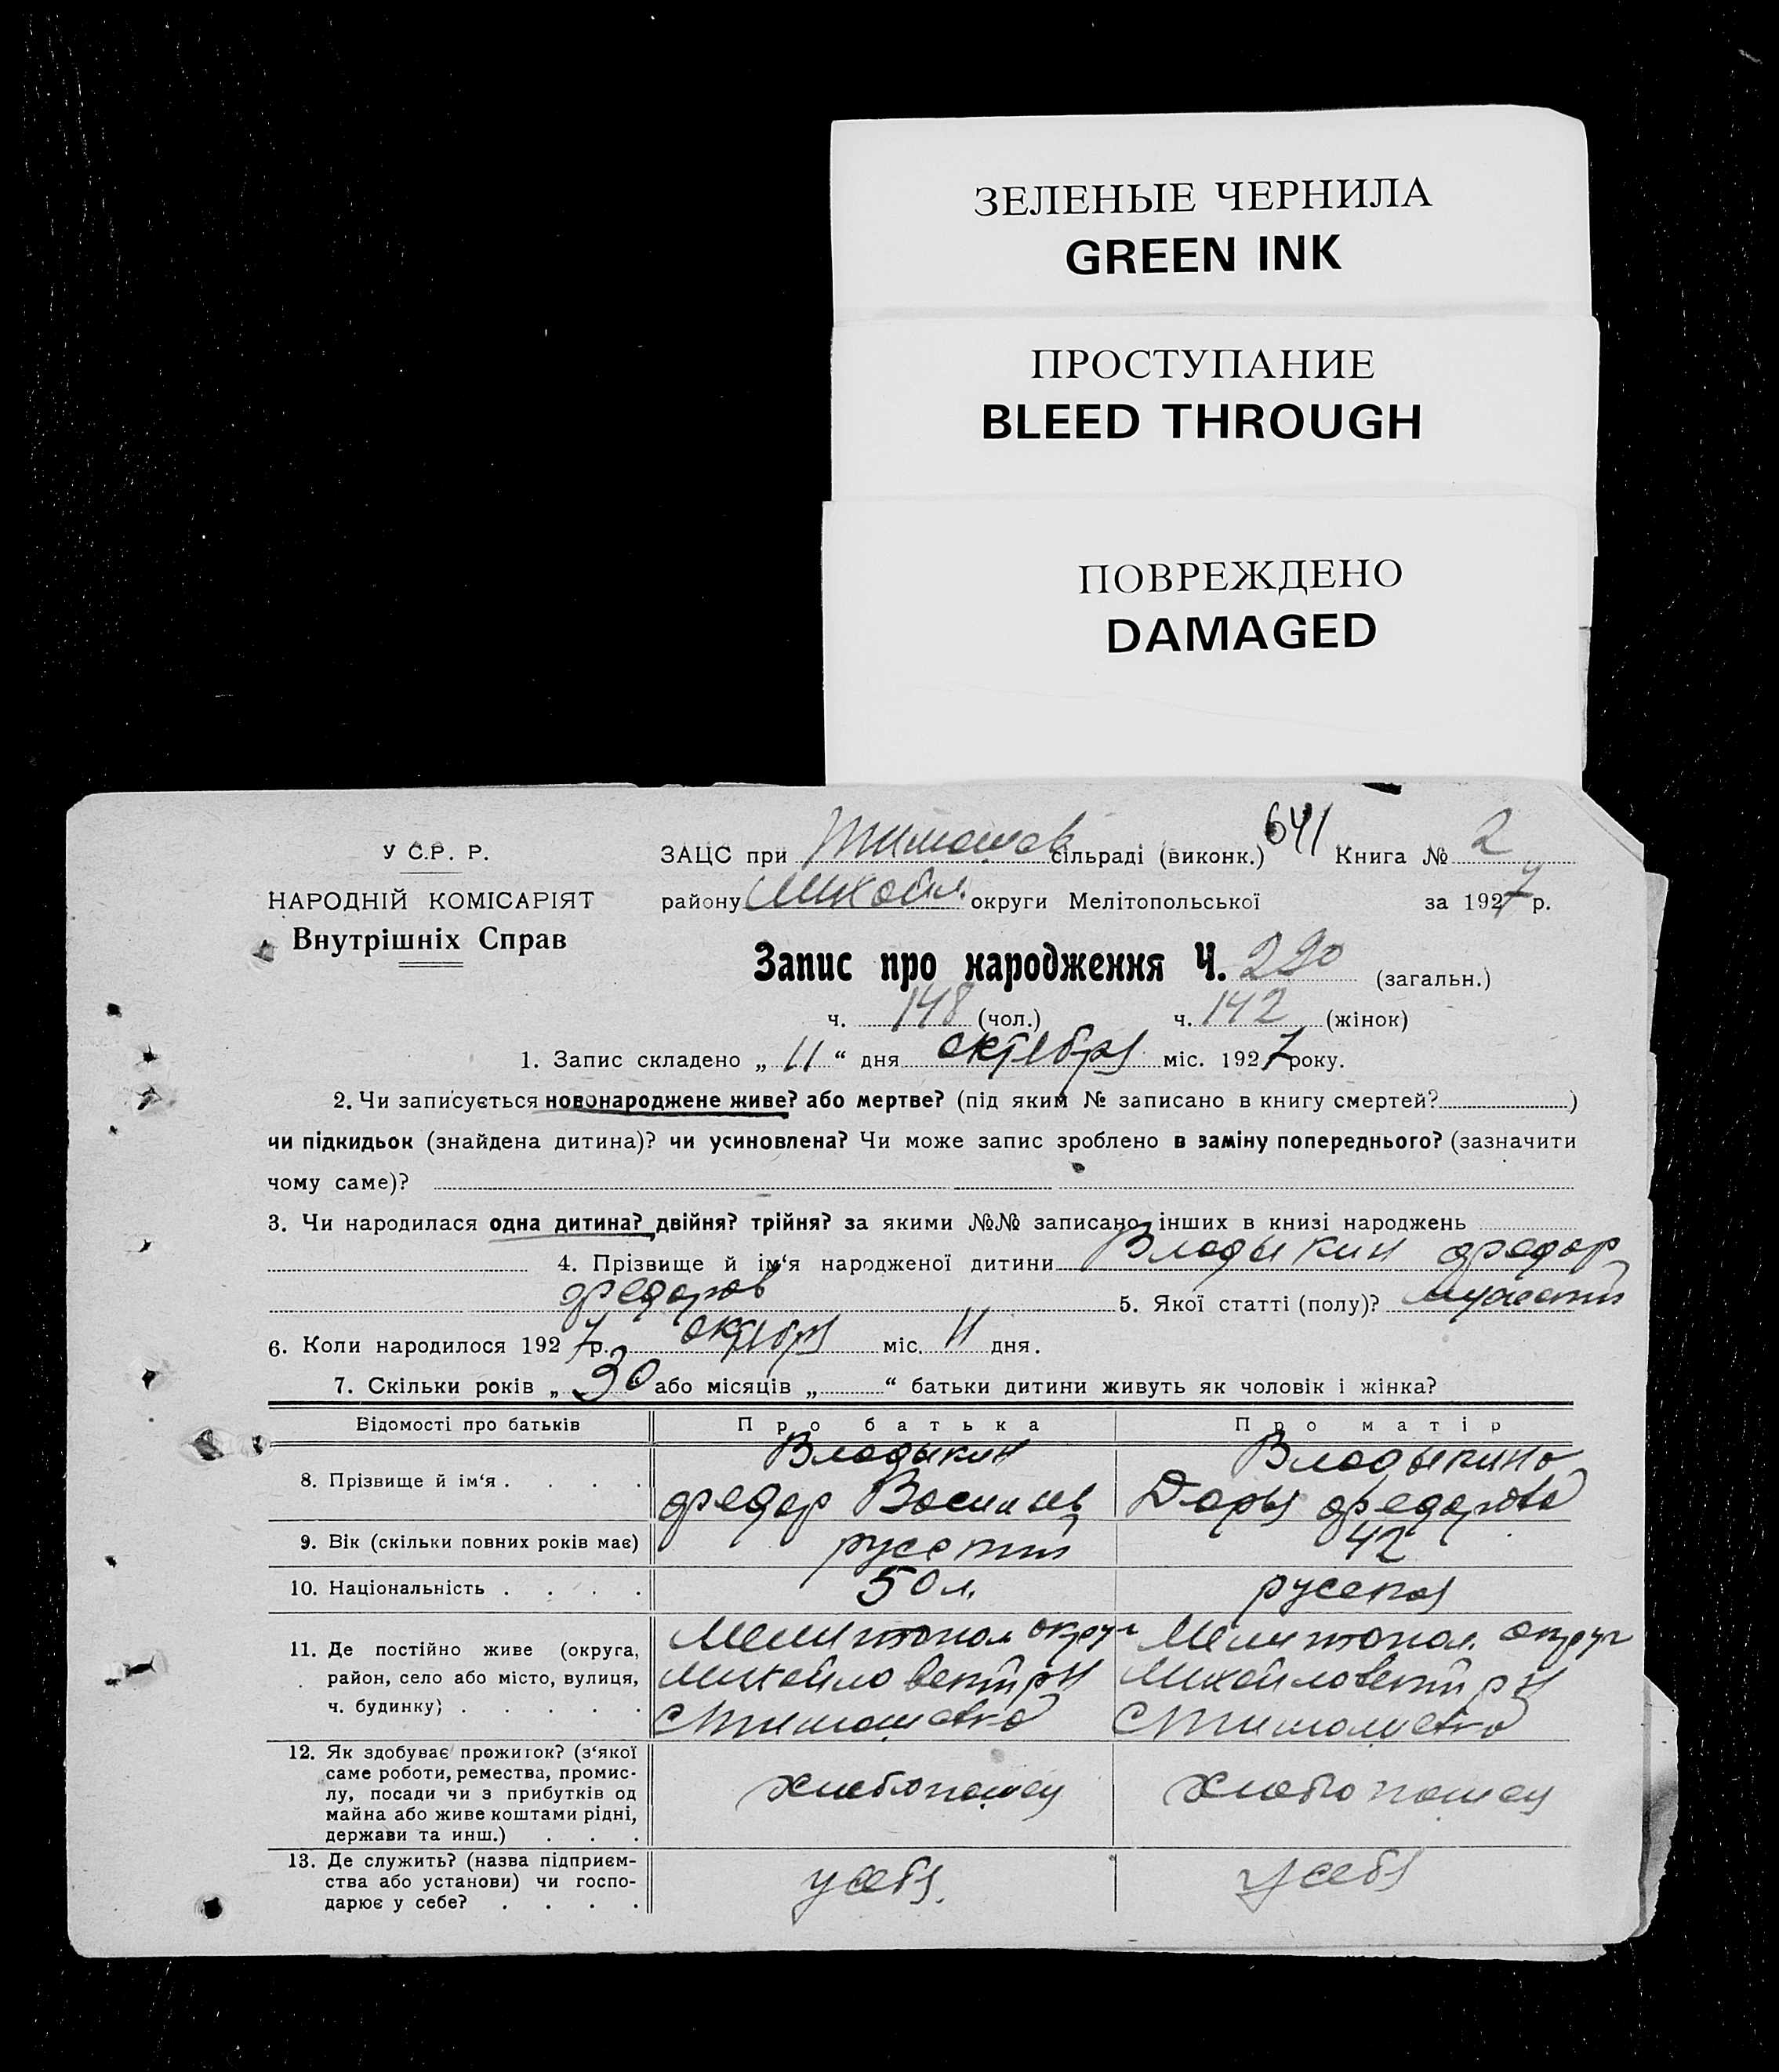 ЗЕЛЕНЫЕ ЧЕРНИЛА
GREEN INK
ПРОСТУПАНИЕ
BLEED THROUGH
ПОВРЕЖДЕНО
DAMAGED
У С.Р. Р.
НАРОДНІЙ КОМІСАРІЯТ
Внутрішніх Справ
ЗАЦС при Тимошов сільраді (виконк.) 641 Книга № 2
району Михайл. округи Мелітопольської за 1927 р.
Запис про народження Ч. 290 (загальн.)
ч. 148 (чол.) ч. 142 (жінок)
1. Запис складено „ 11 “ дня октебря міс. 1927 року.
2. Чи записується новонароджене живе? або мертве? (під яким № записано в книгу смертей? )
чи підкидьок (знайдена дитина)? чи усиновлена? Чи може запис зроблено в заміну попереднього? (зазначити
чому саме)?
3. Чи народилася одна дитина? двійня? трійня? за якими №№ записано інших в книзі народжень
4. Прізвище й ім‘я народженої дитини Владыкин Федор
Федоров 5. Якої статті (полу)? мужской
6. Коли народилося 1927 р. октебря міс. 11 дня.
7. Скільки років „ 30 або місяців „ “ батьки дитини живуть як чоловік і жінка?
Відомості про батьків Про батька Про матір
8. Прізвище й ім‘я . . . . Владыкин Федор Васильев Владыкина Дарья Федорова
9. Вік (скільки повних років має) русский 42
10. Національність . . . . 50 л. русская
11. Де постійно живе (округа, Мелитопол округ Мелитопол. округ
район, село або місто, вулиця, Михайловский рн Михайловский рн
ч. будинку) . . . . . С Тимошовка С Тимошовка
12. Як здобуває прожиток? (з‘якої
саме роботи, ремества, промис-
лу, посади чи з прибутків од хлебопашец хлебопашец
майна або живе коштами рідні,
держави та инш.) . . .
13. Де служить? (назва підприєм-
ства або установи) чи госпо- у себя. у себя
дарює у себе? . . . .